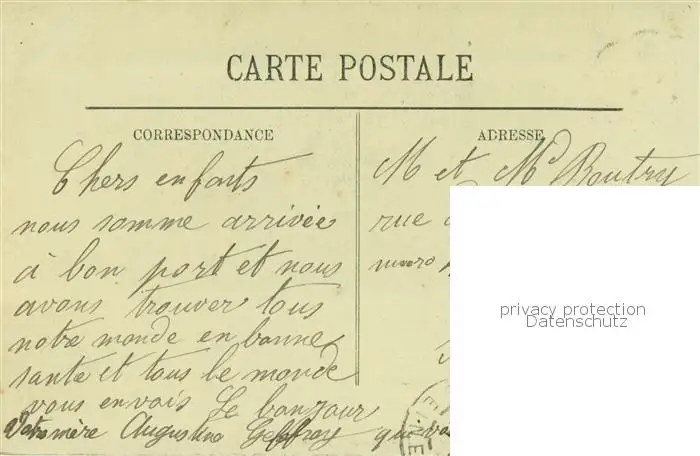 CARTE POSTALE
CORRESPONDANCE
ADRESSE
Chers enfants
nous somme arrivée
à bon port et nous
avons trouver tous
notre monde en bonne
santé et tous le monde
vous envois le bonjour
Votre mère Augustine Geffroy
M et Md Boutry
rue
privacy protection
Datenschutz